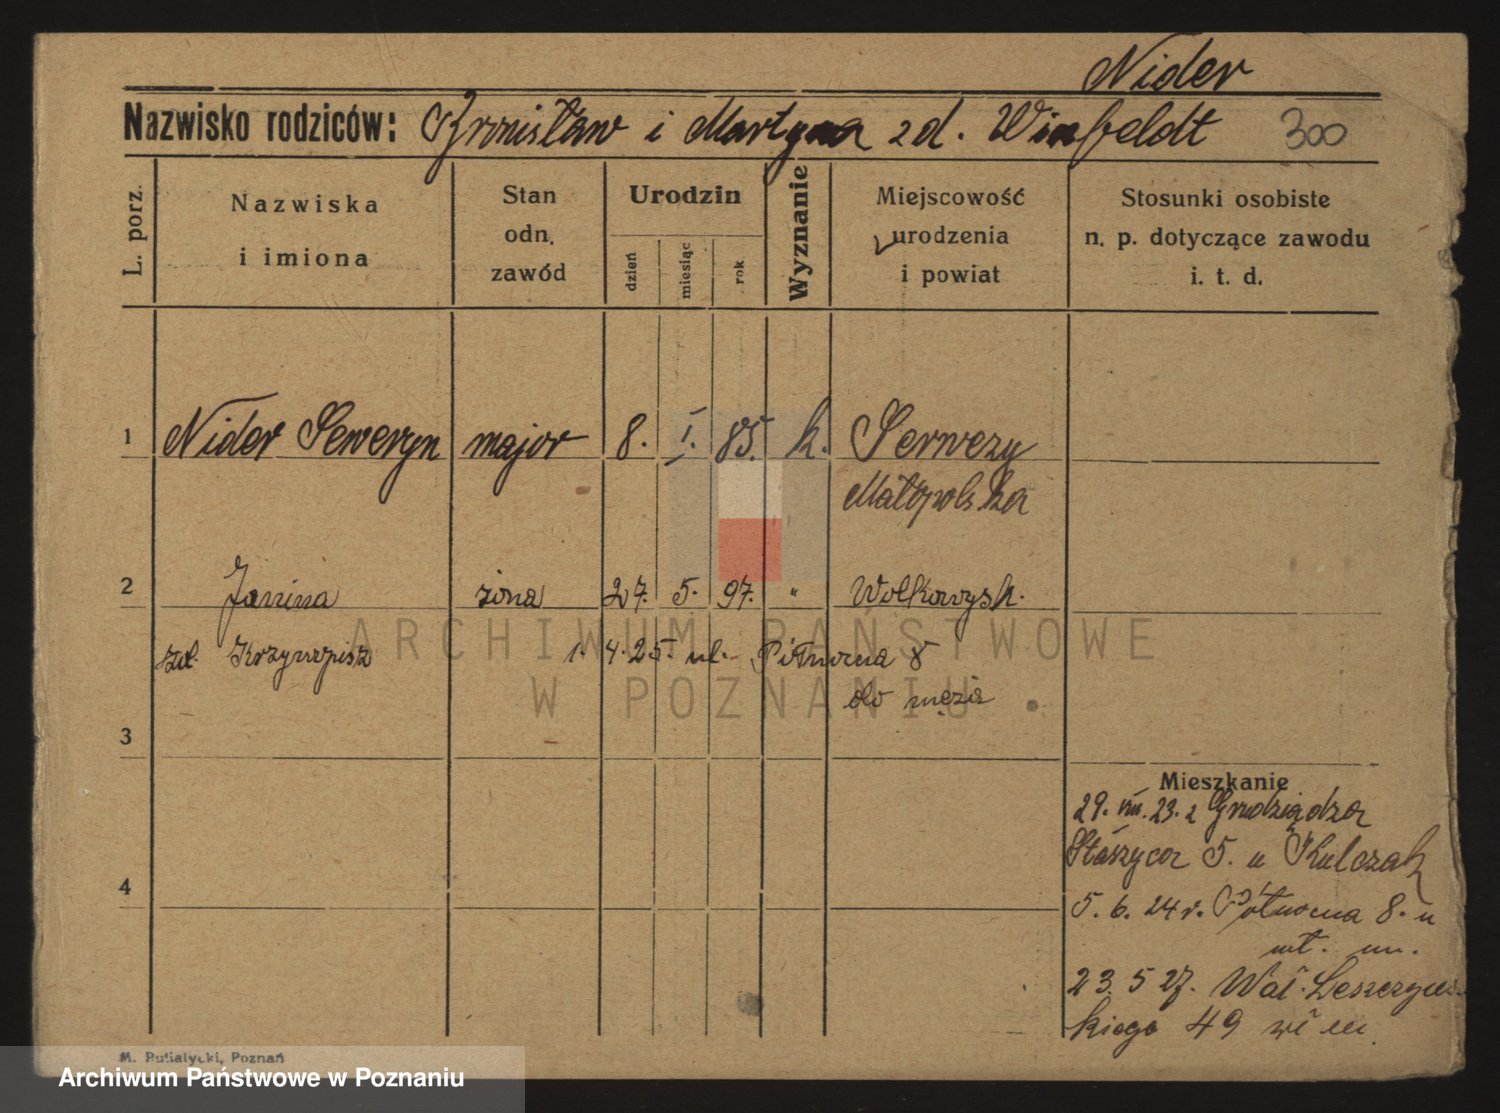 Nider
Nazwisko rodziców: Bronisław i Martyna z d. Winfeldt 300
L. porz.
Nazwiska
i imiona
Stan
odn.
zawód
Urodzin
dzień
miesiąc
rok
Wyznanie
Miejscowość
urodzenia
i powiat
Stosunki osobiste
n. p. dotyczące zawodu
i. t. d.
1 Nider Seweryn major 8. I. 85. k. Serwezy
Małopolska
2 Janina żona 27. 5. 97. " Wołkowysk.
zd. Krzywopisz 1. 4. 25. ul. Północna 8
do męża
3
4
Mieszkanie
29. VIII. 23. z Grudziądza
Staszyca 5. u Kulczak
5. 6. 24 r. Północna 8. u
wł. m.
23. 5 27. Wał. Leszczyńs-
kiego 49 wł m.
ARCHIWUM PAŃSTWOWE
W POZNANIU
M. Putiatycki, Poznań
Archiwum Państwowe w Poznaniu